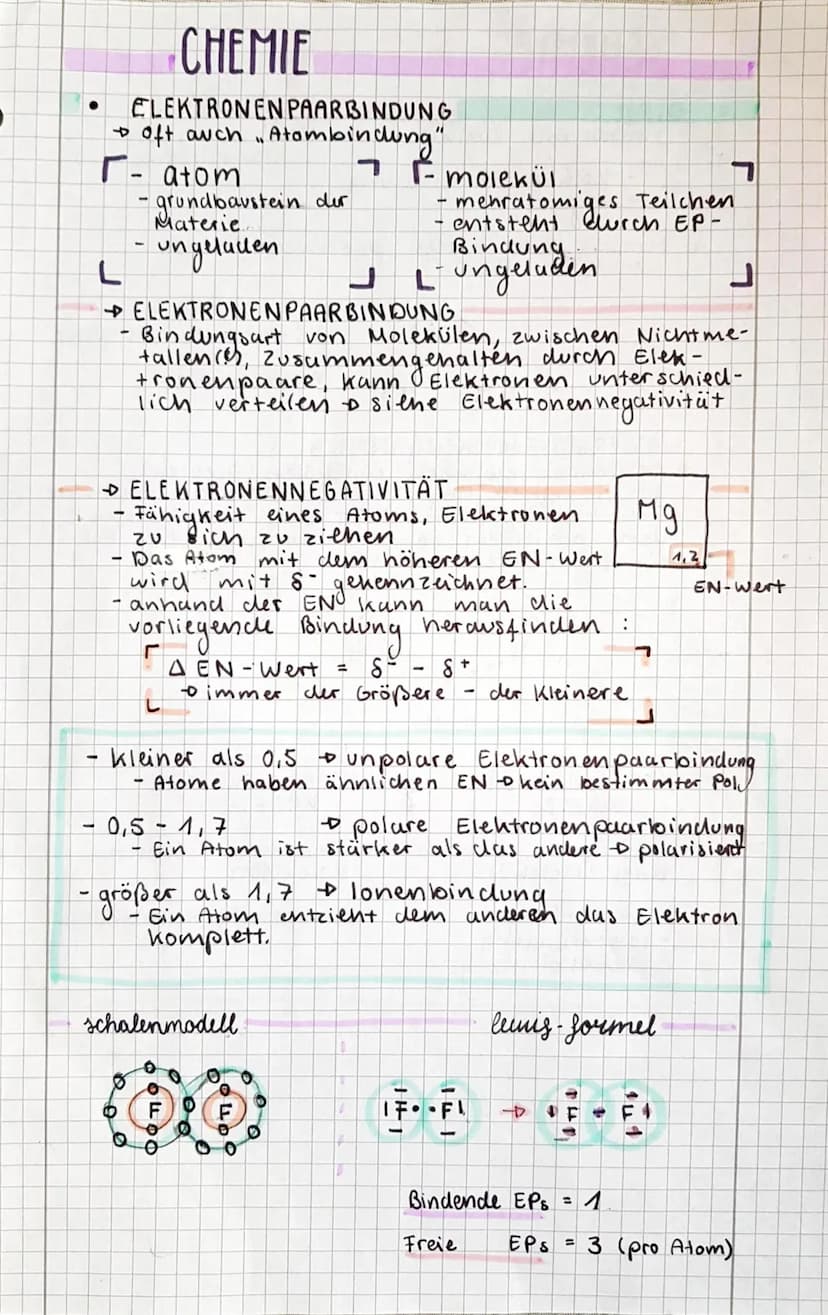 CHEMIE
• ELEKTRONENPAARBINDUNG
→ oft auch „Atombindung"
- atom
- grundbaustein der
Materie
- ungeladen
- molekül
- mehratomiges Teilchen
- entsteht durch EP-
Bindung
- ungeladen
→ ELEKTRONENPAARBINDUNG
- Bindungsart von Molekülen, zwischen Nichtme-
tallen(e), zusammengehalten durch Elek-
tronenpaare, kann Elektronen unterschied-
lich verteilen → siehe Elektronennegativität
→ ELEKTRONENNEGATIVITÄT
- Fähigkeit eines Atoms, Elektronen
zu sich zu ziehen
- Das Atom mit dem höheren EN-Wert
wird mit δ⁻ gekennzeichnet.
- anhand der EN kann man die
vorliegende Bindung herausfinden :
Mg
1,2
EN-Wert
Δ EN-Wert = δ⁻ - δ⁺
→ immer der Größere - der Kleinere
- kleiner als 0,5 → unpolare Elektronenpaarbindung
- Atome haben ähnlichen EN → kein bestimmter Pol
- 0,5 - 1,7 → polare Elektronenpaarbindung
- Ein Atom ist stärker als das andere → polarisiert
- größer als 1,7 → Ionenbindung
- Ein Atom entzieht dem anderen das Elektron
komplett.
schalenmodell
lewis-formel
F F
|F• •F| → |F - F|
Bindende EPs = 1
Freie EPs = 3 (pro Atom)